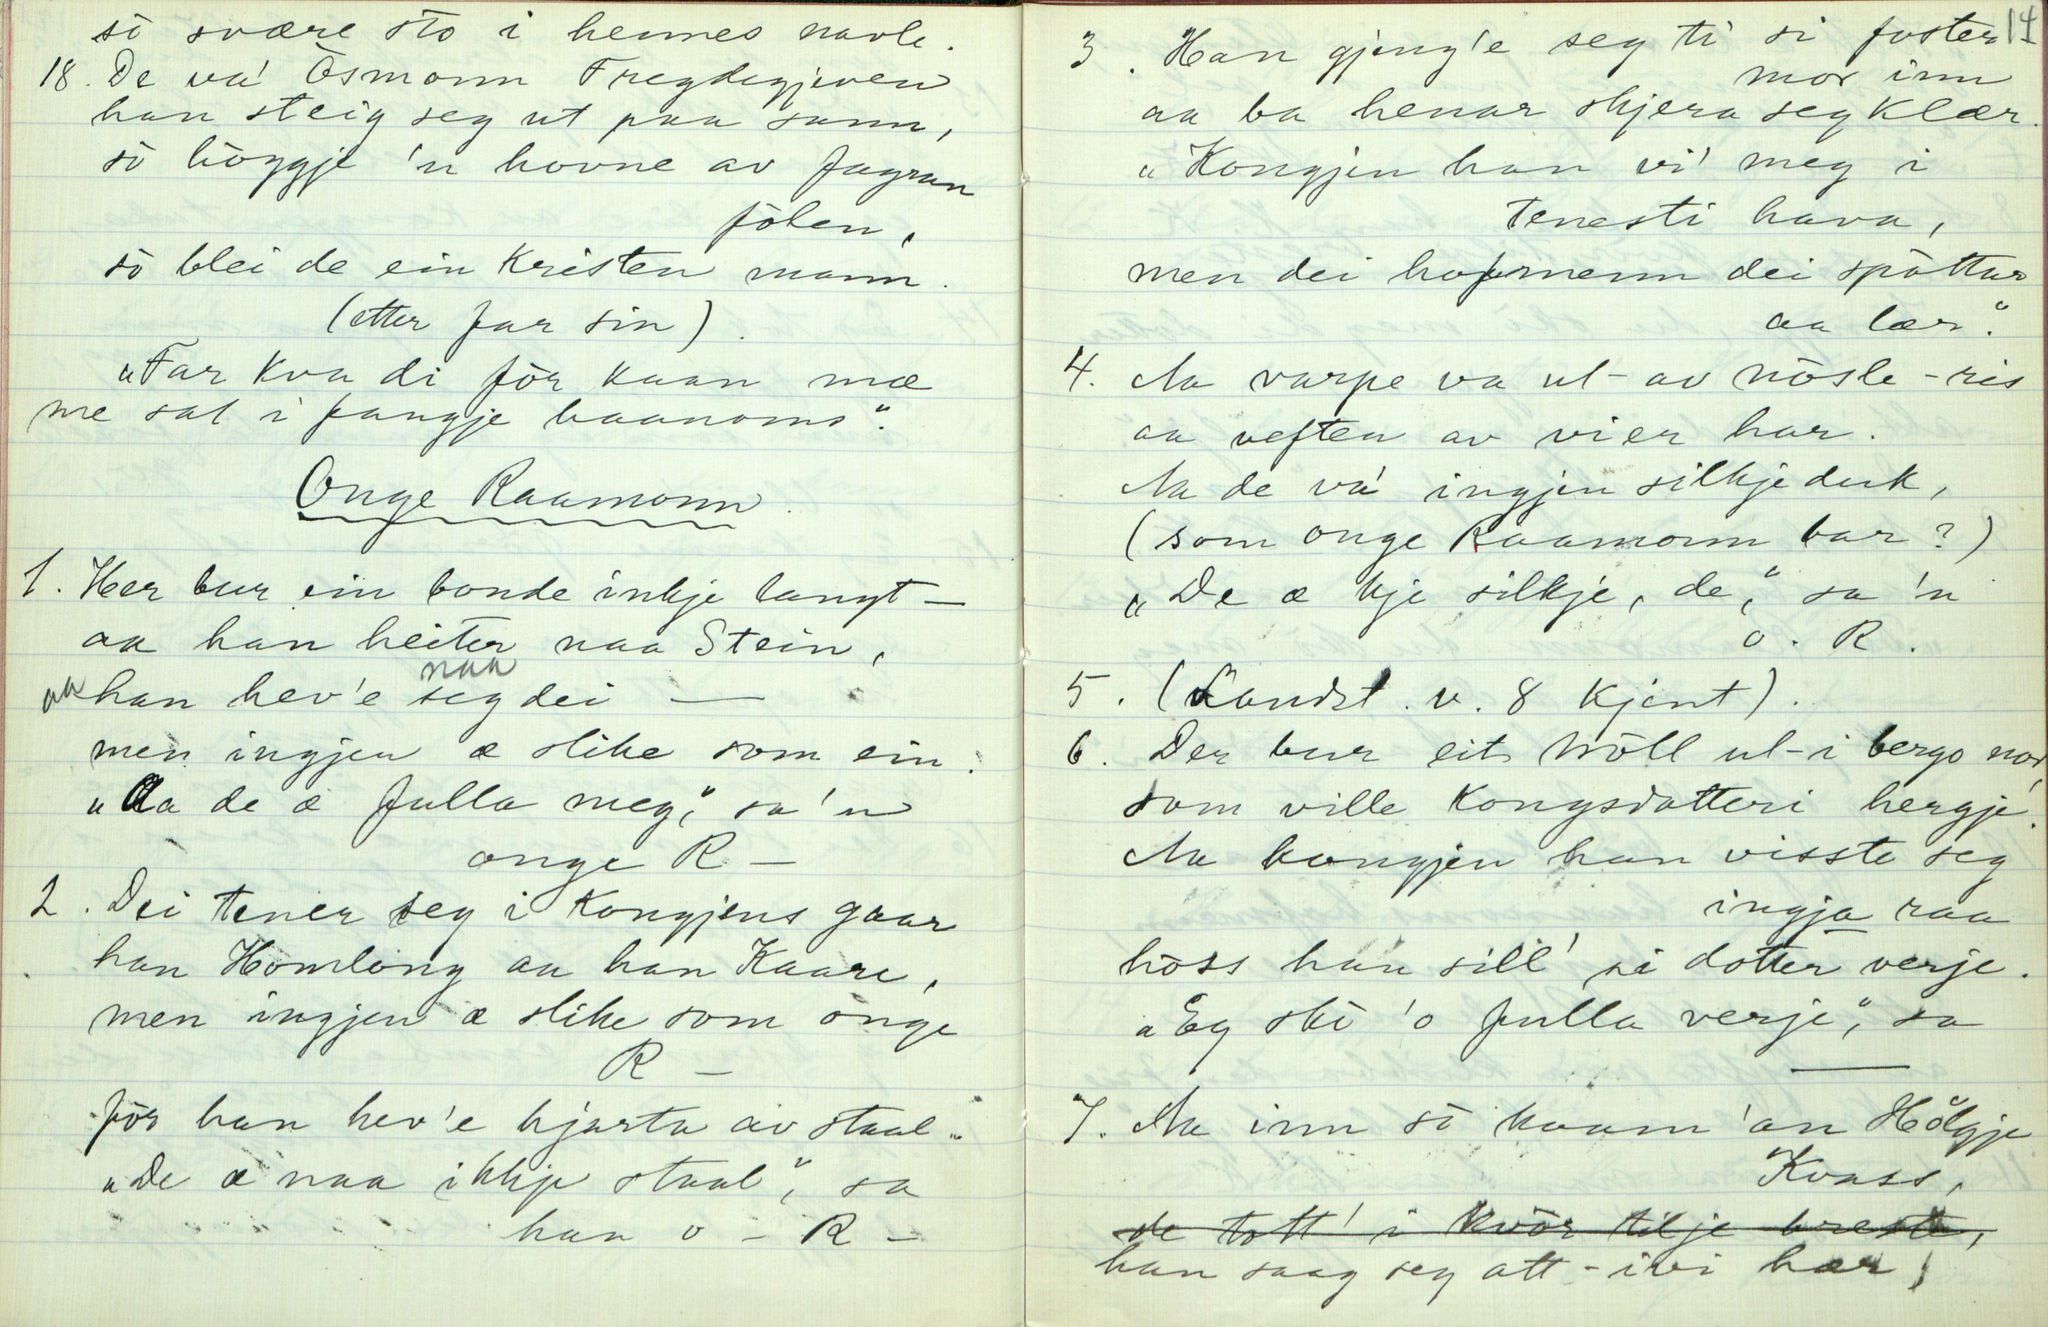 sò svære sto i hennes navle.
18. De va' Òsmonn Fregdegjeven
han steig seg ut paa sann,
sò hòggje 'n hovne av fagran
fòlen,
sò blei de ein kristen mann.
(etter far sin).
„Far kva di fòr kaan mæ
me sat i fangje baanoms".
Onge Raamonn.
1. Her bur ein bonde inkje langt –
aa han heiter naa Stein,
aa han hev'e naa seg dei —
men ingjen æ slike som ein.
„Aa de æ fulla meg", sa 'n
onge R –
2. Dei tener seg i Kongjens gaar
han Homlong aa han Kaare,
men ingjen æ slike som onge
R –
fòr han hev'e hjarta av staal.
„De æ naa ikkje staal", sa
han o – R –
14
3. Han gjeng'e seg ti si foster
mor inn
aa ba henar skjera seg klær.
„Kongjen han vi' meg i
tenesti hava,
men dei hofmenn dei spòttar
aa lær".
4. Aa varpe va ut-av nòsle-ris
aa veften av vier har.
Aa de va' ingjen silkjeduk,
(som onge Raamonn bar?)
„De æ kje silkje, de", sa 'n
o. R.
5. (Landst. v. 8 kjent).
6. Der bur eit tròll ut-i bergo nor,
som ville Kongsdatteri hergje.
Aa kongjen han visste seg
ingja raa
hòss han sill' si dotter verje.
„Eg ski 'o fulla verje", sa
—
7. Aa inn sò kaam 'an Hòlgje
Kvass,
de tott' i kvòr tilje breste,
han saag seg att-ivi hær,